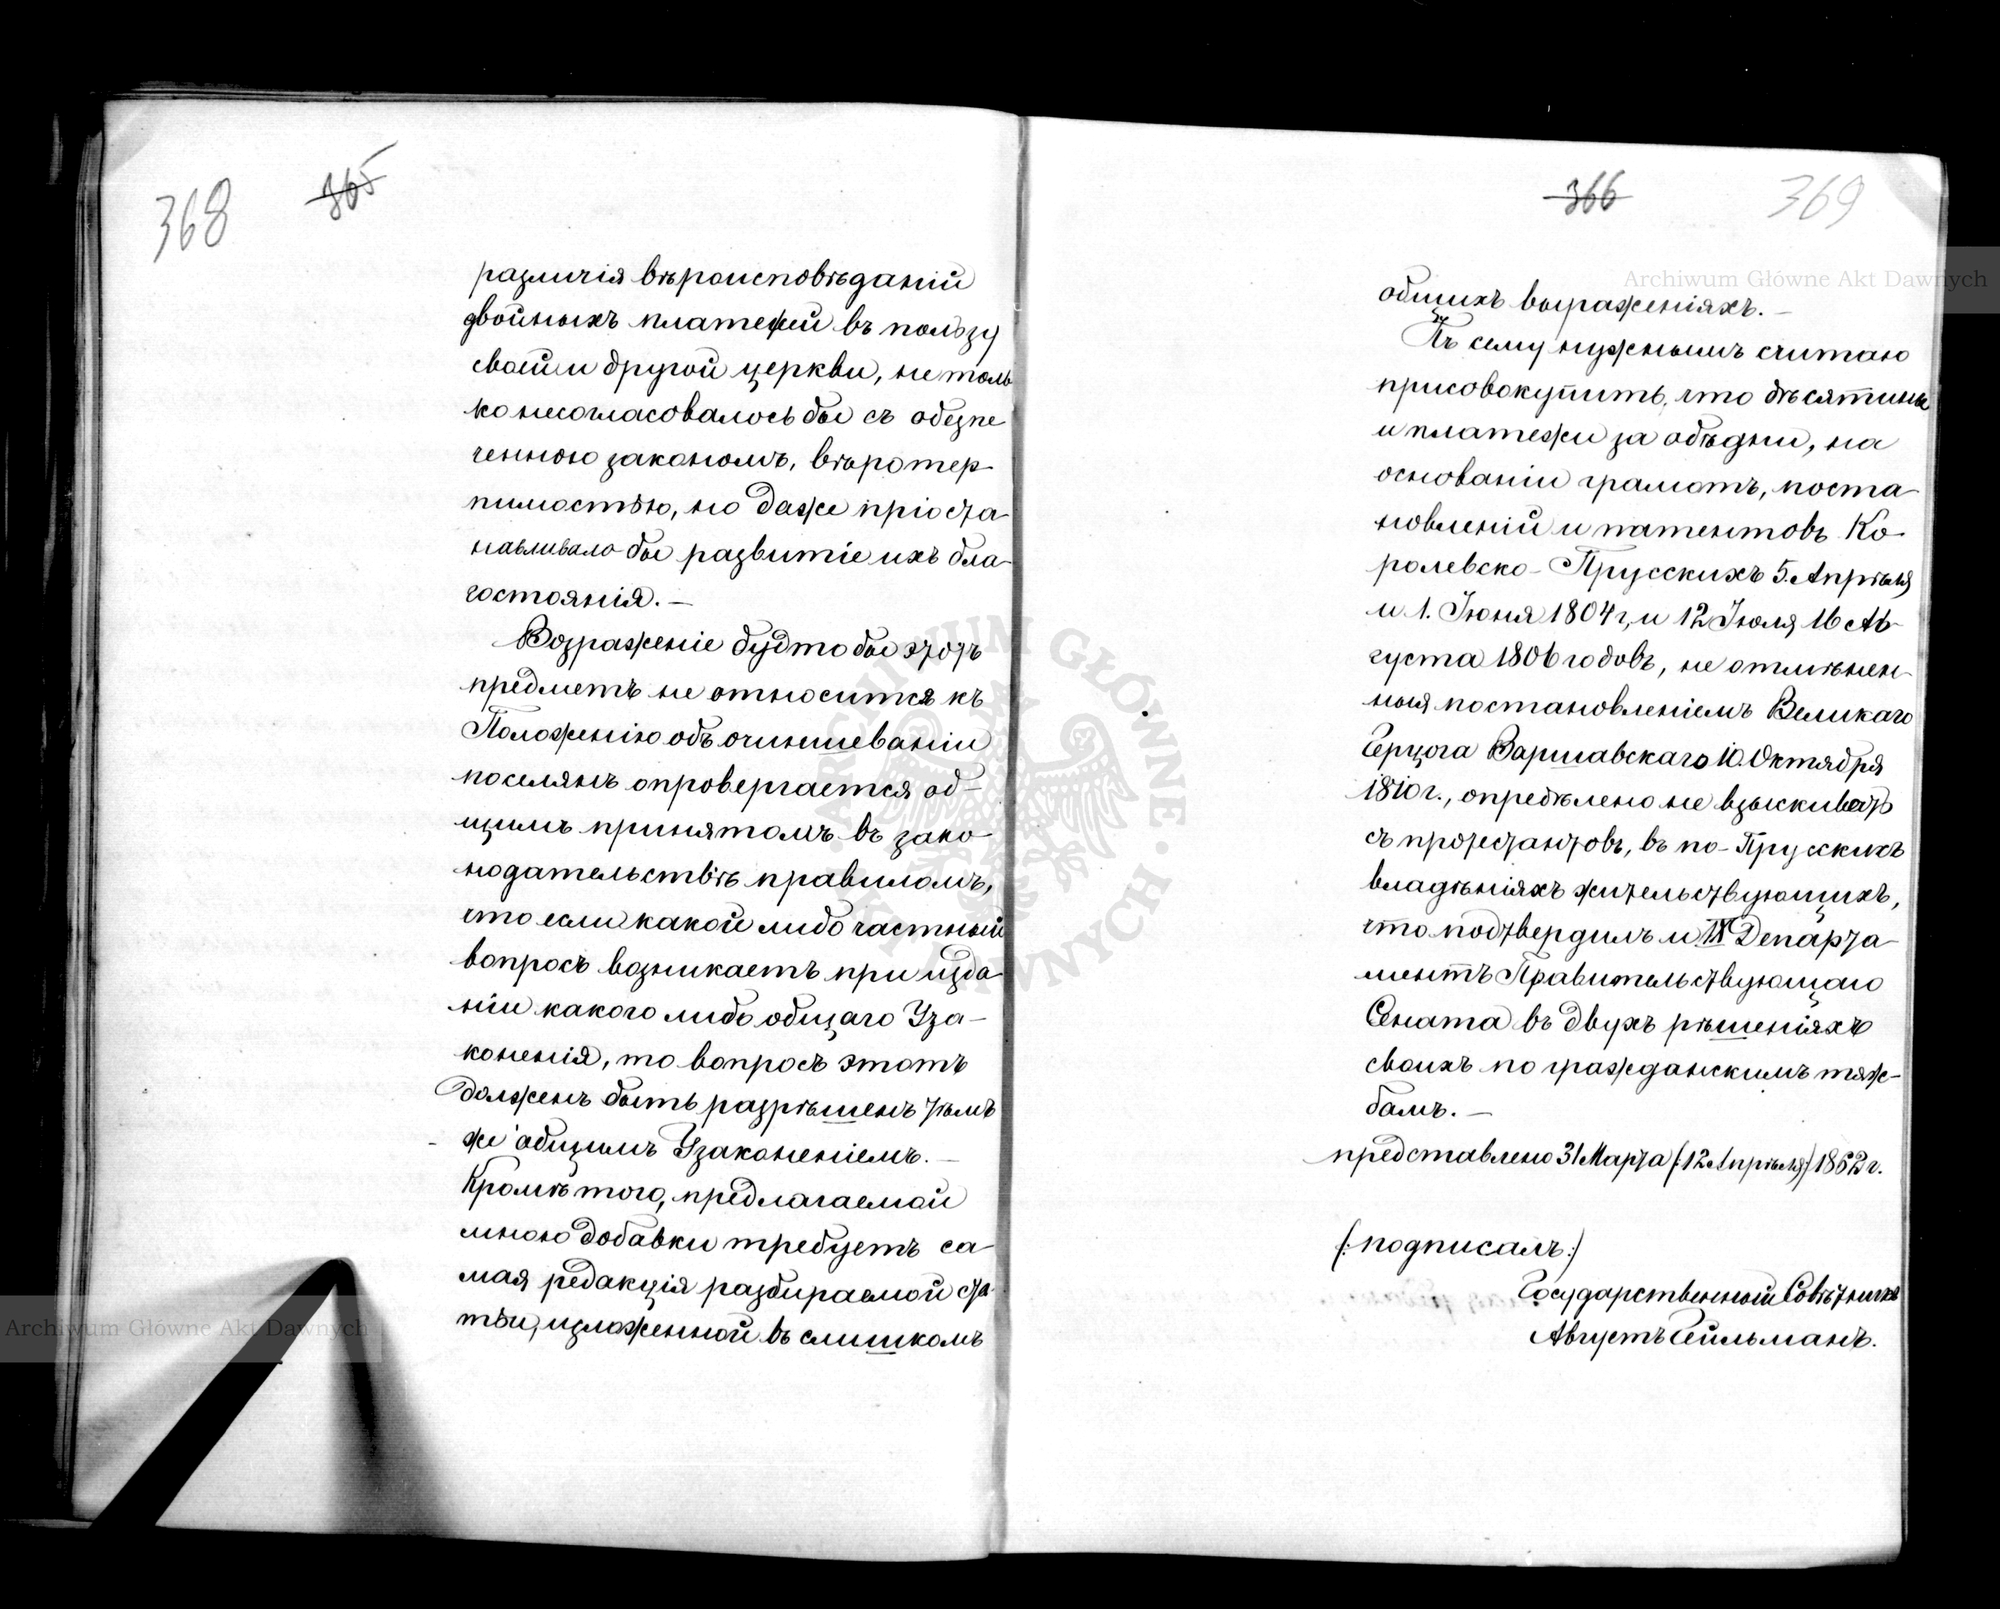 368
365
различія вѣроисповѣданій
двойныхъ платежей въ пользу
своей и другой церкви, не толь
ко несогласовалось бы съ обезпе
ченною закономъ, вѣротер-
пимостью, но даже пріоста-
навливало бы развитіе ихъ бла-
госостоянія. —
Возраженіе будто бы этотъ
предметъ не относится къ
Положенію объ очиншеваніи
поселянъ опровергается об-
щимъ принятомъ въ зако-
нодательствѣ правиломъ,
что если какой либо частный
вопросъ возникаетъ при изда-
ніи какого либо общаго Уза-
коненія, то вопросъ этотъ
долженъ быть разрѣшенъ тѣмъ
же общимъ Узаконеніемъ. —
Кромѣ того, предлагаемой
мною добавки требуетъ са-
мая редакція разбираемой ста-
тьи, изложенной въ слишкомъ
366
369
общихъ выраженіяхъ. —
Къ сему нужнымъ считаю
присовокупить, что десятины
и платежи за обѣдни, на
основаніи грамотъ, поста-
новленій и патентовъ Ко-
ролевско-Прусскихъ 5. Апрѣля
и 1. Іюня 1804 г, и 12 Іюля 16 Ав-
густа 1806 годовъ, не отмѣнен-
ныя постановленіемъ Великаго
Герцога Варшавскаго 10. Октября
1810 г., опредѣлено не взыскивать
съ протестантовъ, въ по-Прусскихъ
владѣніяхъ жительствующихъ,
что подтвердилъ и IX Департа-
ментъ Правительствующаго
Сената въ двухъ рѣшеніяхъ
своихъ по гражданскимъ тяж-
бамъ. —
представлено 31 Марта /:12 Апрѣля:/ 1862 г.
/:подписалъ:/
Государственный Совѣтникъ
Августъ Гейльманъ.
Archiwum Główne Akt Dawnych
Archiwum Główne Akt Dawnych
ARCHIWUM GŁÓWNE AKT DAWNYCH